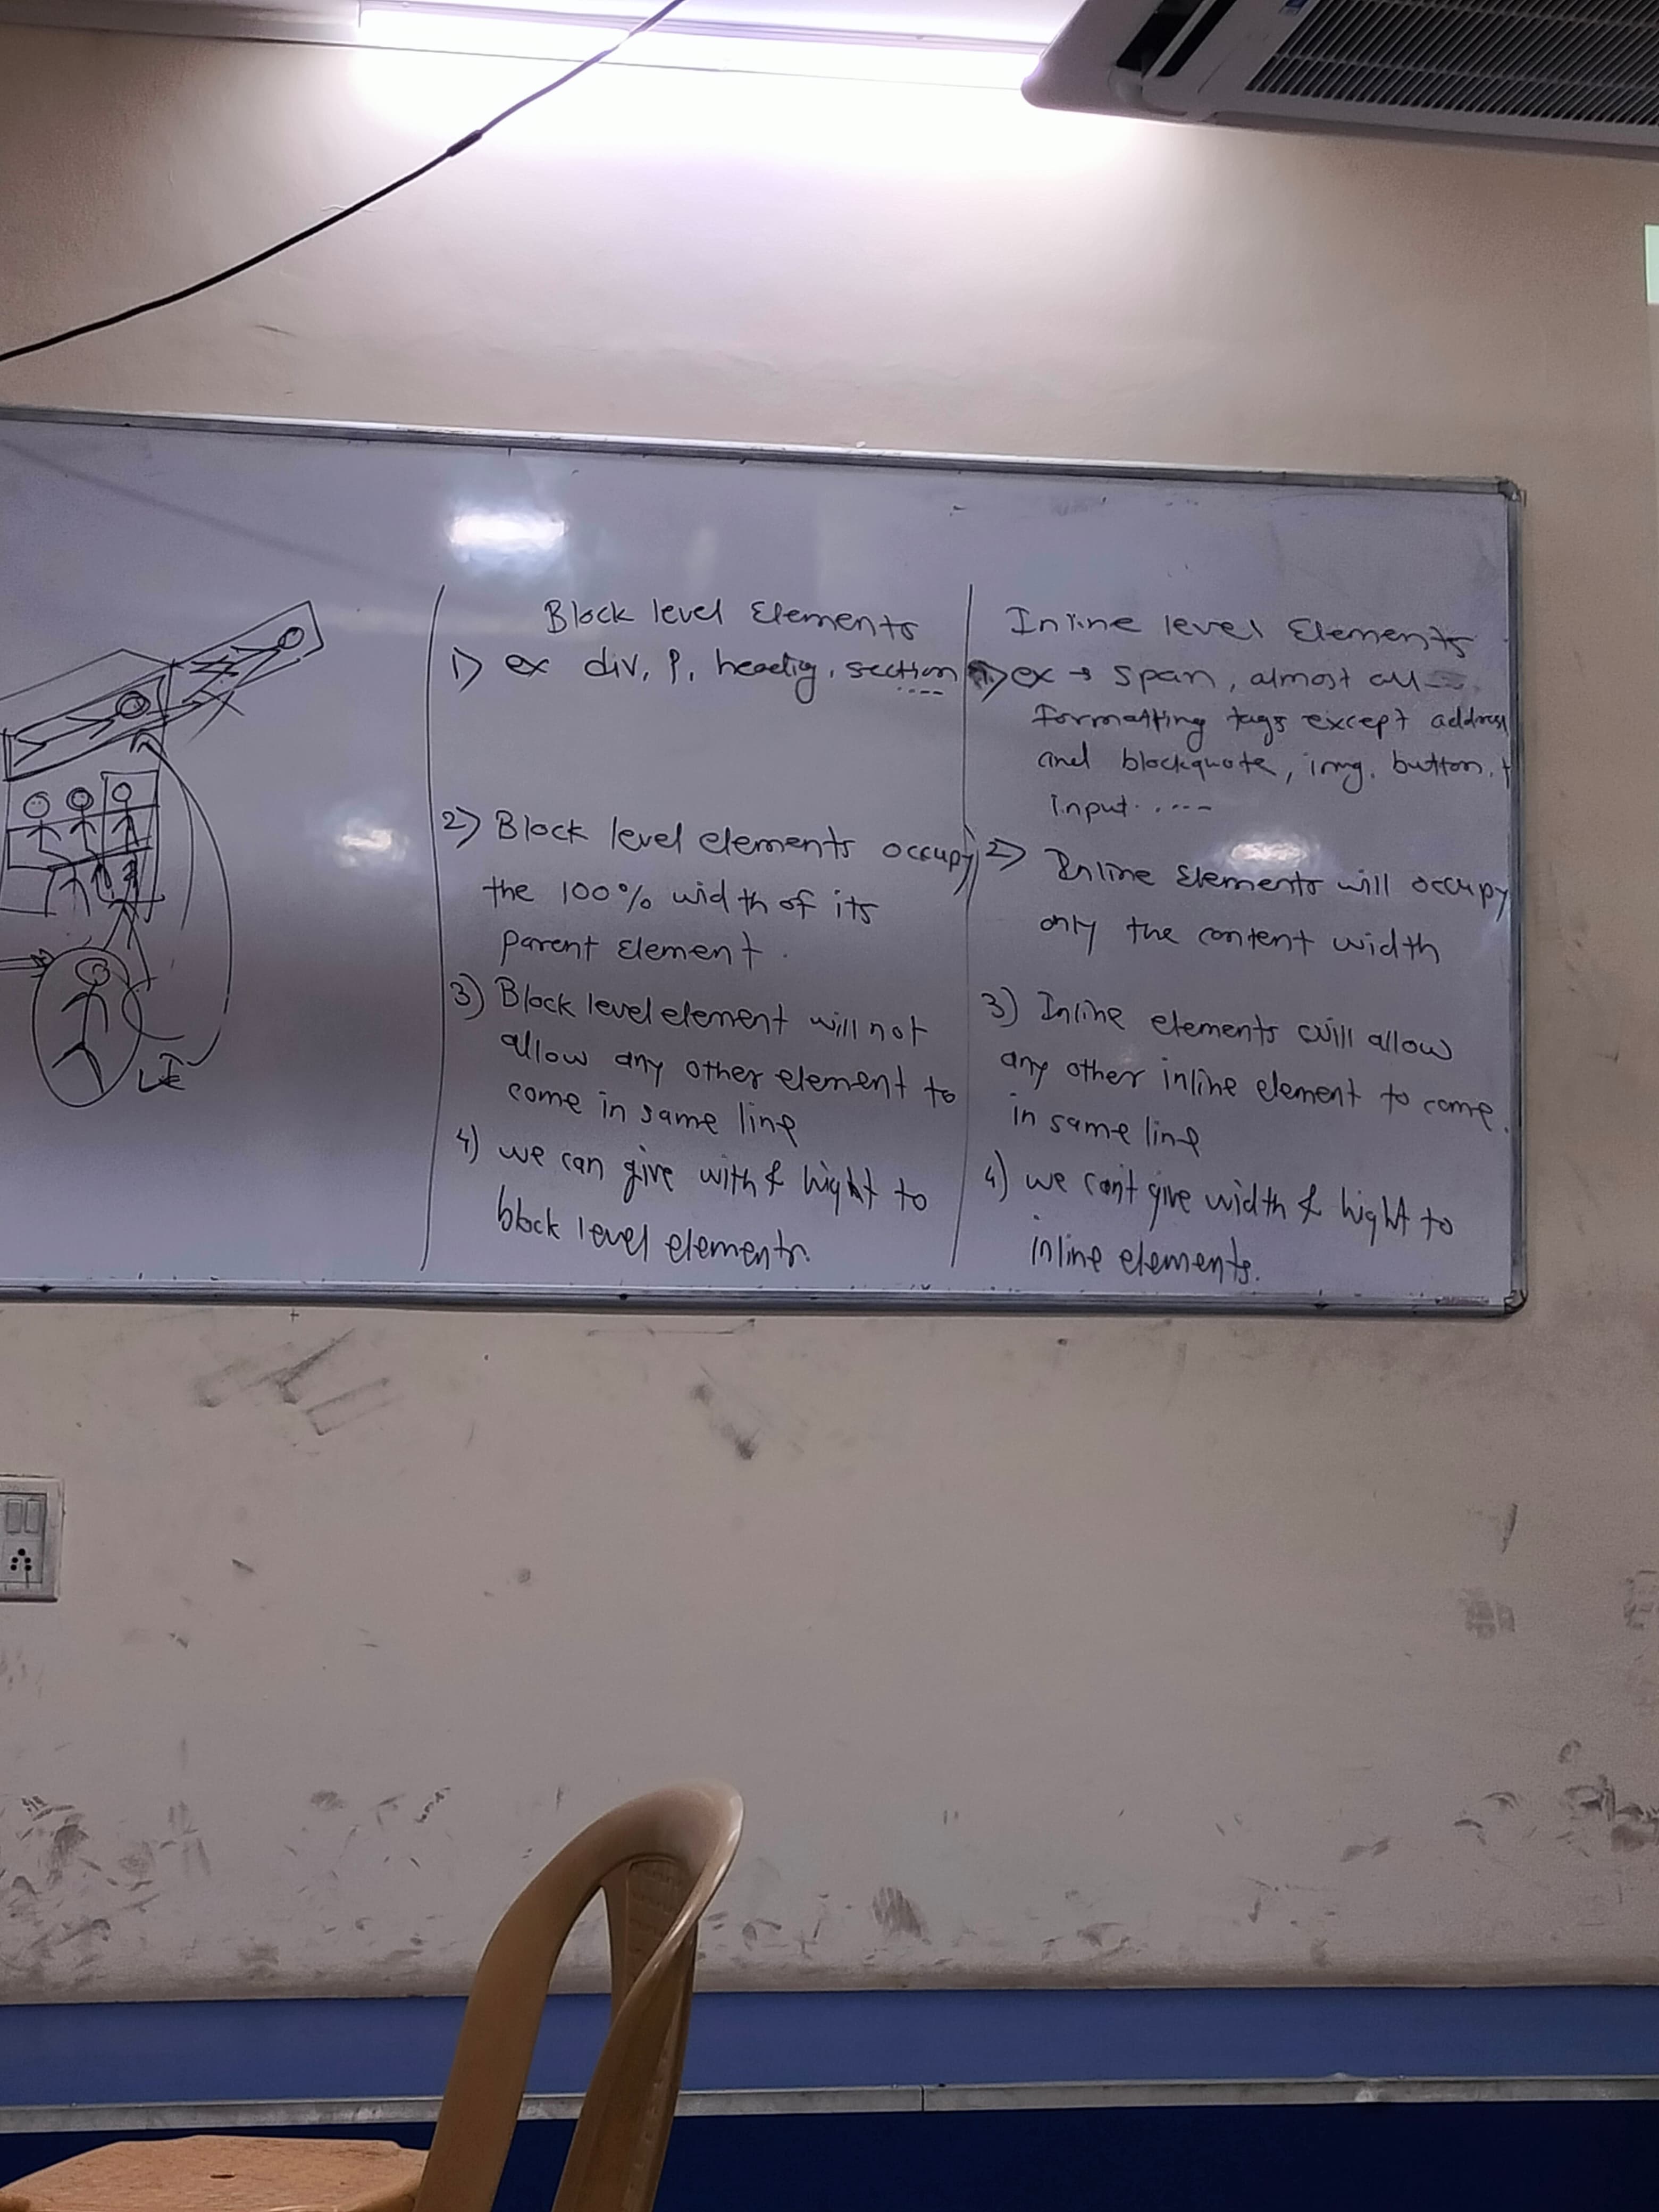 Block level Elements
1) ex div, P, heading, section ----
2) Block level elements occupy
the 100% width of its
parent Element.
3) Block level element will not
allow any other element to
come in same line
4) we can give with & hight to
block level elements.
Inline level Elements
1) ex → span, almost all
formatting tags except address
and blockquote, img, button,
input.....---
2) Inline Elements will occupy
only the content width
3) Inline elements will allow
any other inline element to come
in same line
4) we can't give width & hight to
inline elements.